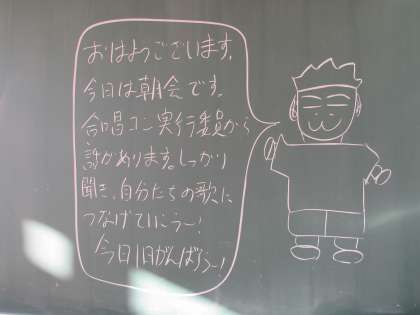 おはようございます。
今日は朝会です。
合唱コン実行委員から
話があります。しっかり
聞き、自分たちの歌に
つなげていこうー!
今日1日がんばろうー!